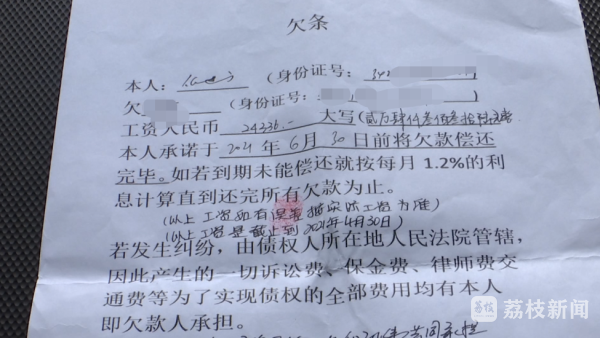 欠条
本人： （身份证号：
欠 （身份证号：
工资人民币 24336.- 大写（贰万肆仟叁佰叁拾陆元整
本人承诺于 2021 年 6 月 30 日前将欠款偿还
完毕。如若到期未能偿还就按每月 1.2%的利
息计算直到还完所有欠款为止。
（以上工资如有误差按实际工资为准）
（以上工资是截止到2021年4月30日）
若发生纠纷，由债权人所在地人民法院管辖，
因此产生的一切诉讼费、保金费、律师费交
通费等为了实现债权的全部费用均有本人
即欠款人承担。
荔枝新闻